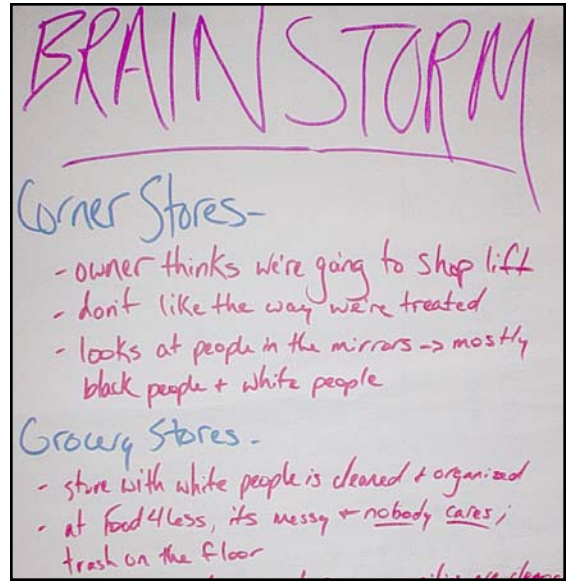 BRAINSTORM
Corner Stores-
- owner thinks we're going to shop lift
- don't like the way we're treated
- looks at people in the mirrors -> mostly
black people + white people
Grocery Stores -
- store with white people is cleaned + organized
- at Food4Less, its messy + nobody cares;
trash on the floor